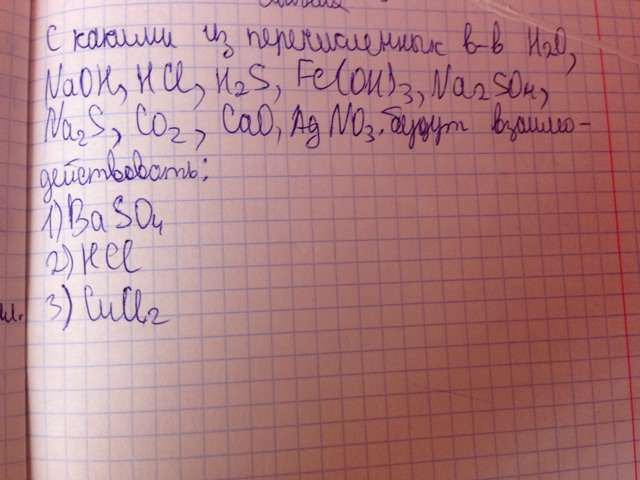 С какими из перечисленных в-в H2O,
NaOH, HCl, H2S, Fe(OH)3, Na2SO4,
Na2S, CO2, CaO, AgNO3. будут взаимо-
действовать:
1) BaSO4
2) HCl
3) CuCl2